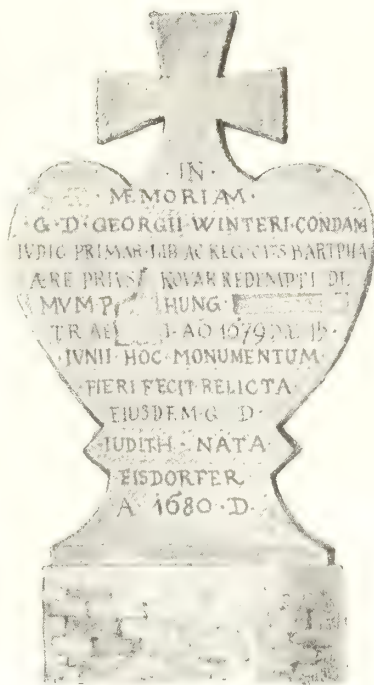 ·IN·
MEMORIAM·
·G·D·GEORGII·WINTERI·CONDAM
IVDIC PRIMAR·LIB AC REG·CI͞TS BARTPHA
ÆRE PRIUS KOVAR REDEMPTI DE
MVM P HUNG·
TRAE AO 1679 DIE 15
·IVNII·HOC·MONUMENTUM·
·FIERI FECIT·RELICTA·
EIUSDEM·G D·
·IUDITH·NATA
EISDORFER
A· 1680 ·D·